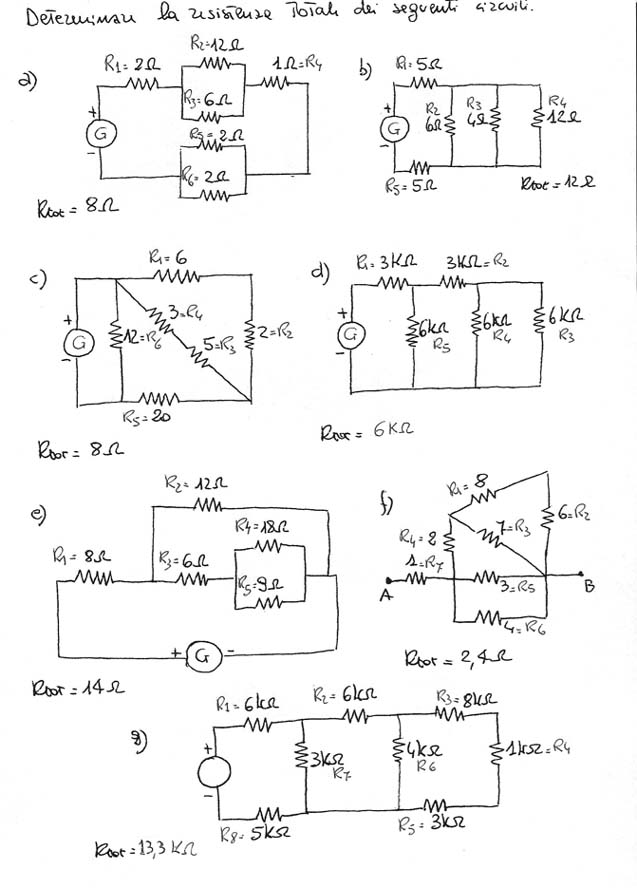 Determinare la resistenza Totale dei seguenti circuiti.
a)
R1=2Ω
R2=12Ω
1Ω=R4
R3=6Ω
R5=2Ω
R6=2Ω
+
G
-
Rtot = 8Ω
b)
R1=5Ω
R2
6Ω
R3
4Ω
R4
12Ω
+
G
-
R5=5Ω
Rtot=12Ω
c)
R1=6
3=R4
12=R6
5=R3
2=R2
+
G
-
R5=20
Rtot = 8Ω
d)
R1=3KΩ
3KΩ=R2
6KΩ
R5
6KΩ
R4
6KΩ
R3
+
G
-
Rtot = 6KΩ
e)
R2=12Ω
R4=18Ω
R1=8Ω
R3=6Ω
R5=9Ω
+
G
-
Rtot=14Ω
f)
R1=8
6=R2
7=R3
R4=2
1=R7
A
3=R5
B
4=R6
Rtot = 2,4Ω
g)
R1=6KΩ
R2=6KΩ
R3=8KΩ
+
-
3KΩ
R7
4KΩ
R6
1KΩ=R4
R8=5KΩ
R5=3KΩ
Rtot=13,3 KΩ